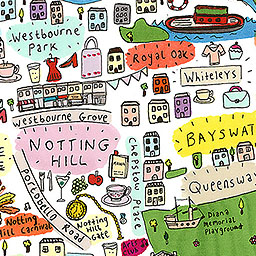 Westbourne
Park
Royal Oak
Whiteleys
Westbourne Grove
NOTTING
HILL
BAYSWAT
Chepstow Place
Queensway
Portobello Road
Notting
Hill Carnival
Notting
Hill
Gate
Diana
Memorial
Playground